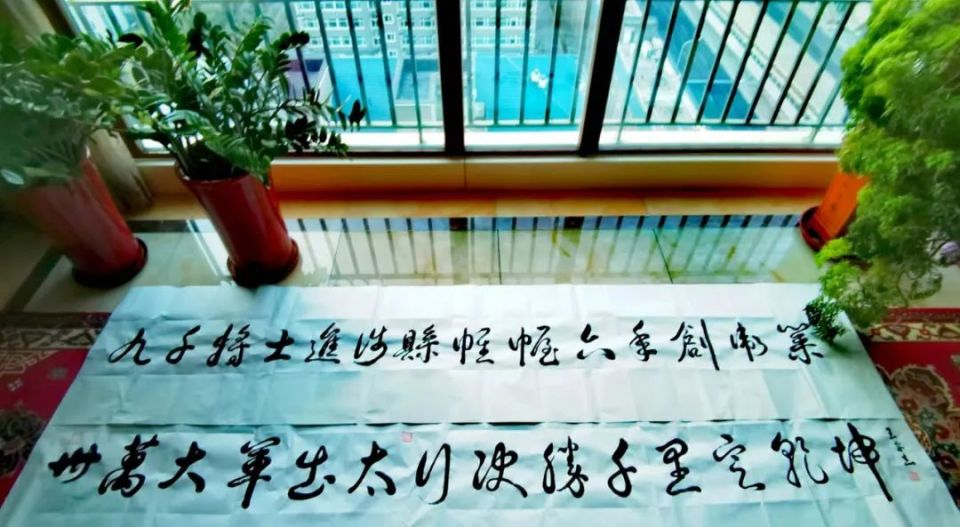 九千将士進涉縣帷幄六年創衛業
卅萬大軍出太行决勝千里定乾坤